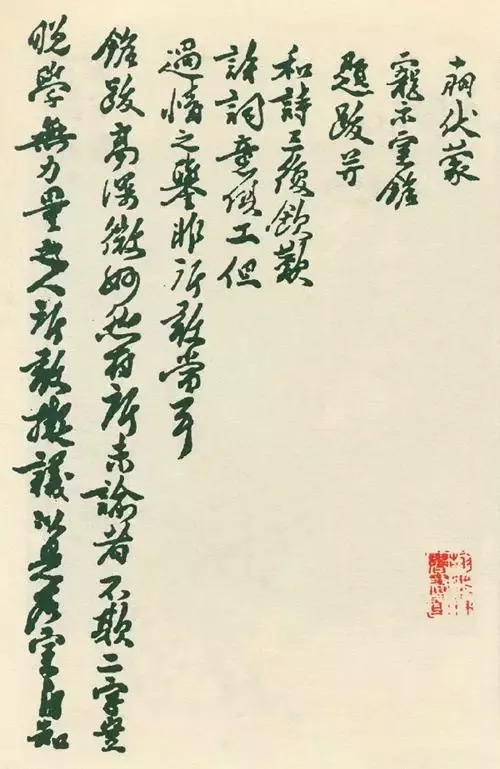 栻伏蒙
寵示室銘
題跋并
和詩三復欽歎
詩詞意俱工但
過情之舉非所敢當耳
銘跋高深微妙然有所未諭者不欺二字豈
晚學無力量之人所敢擬議以是名室自知